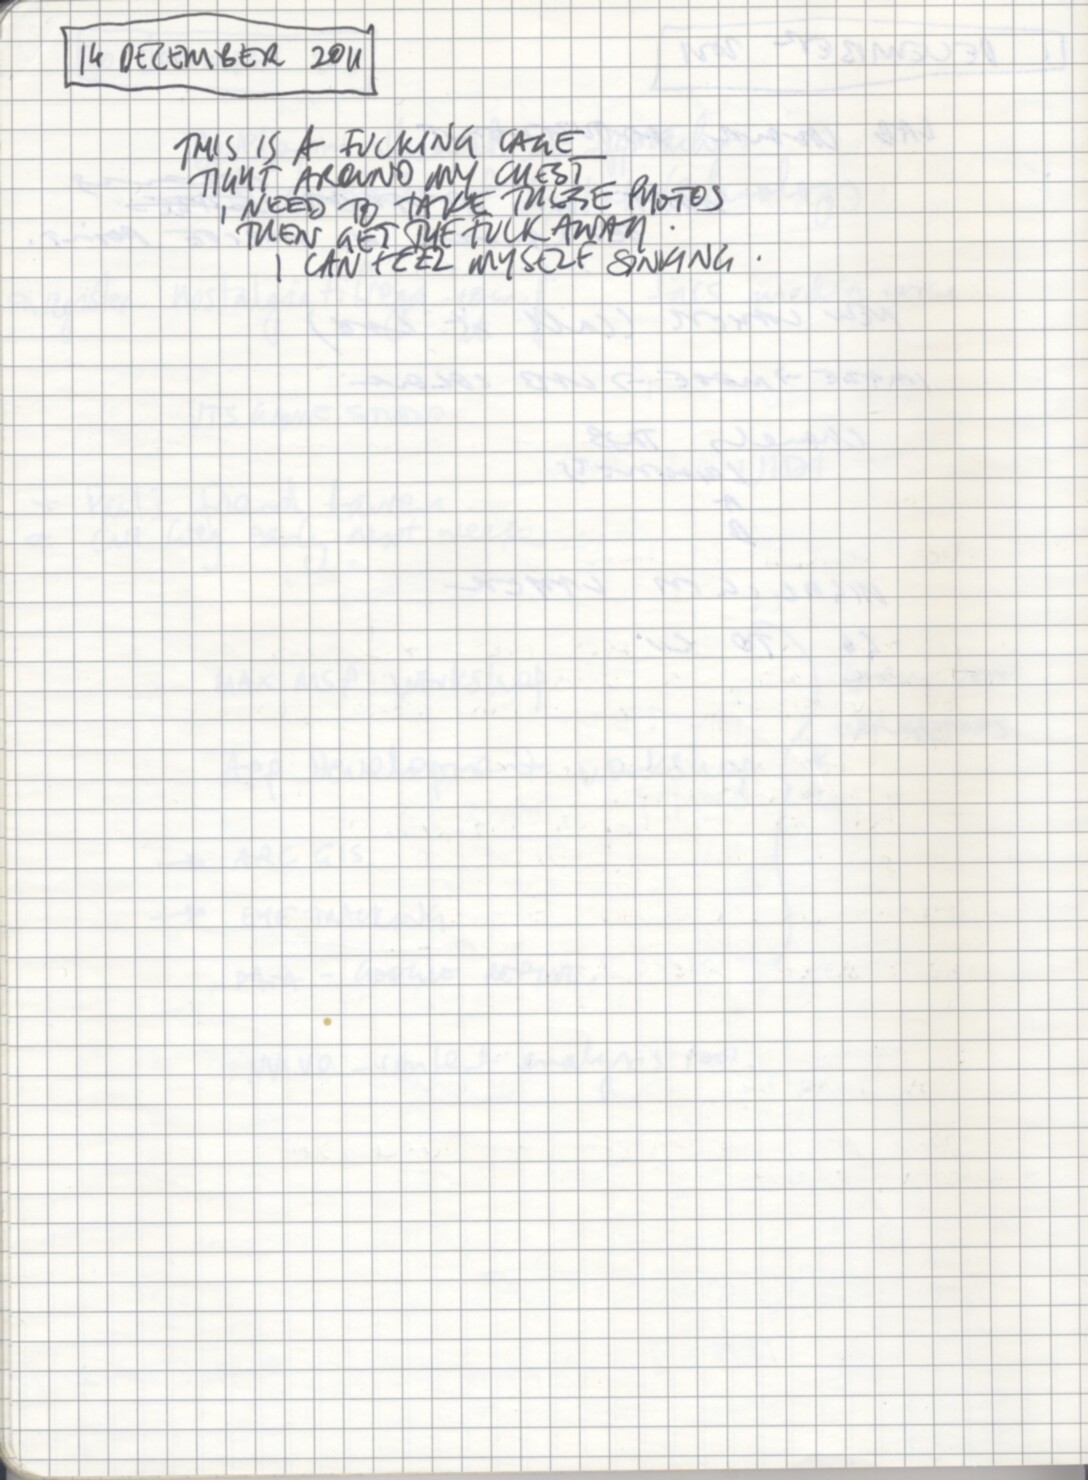 14 DECEMBER 2011
THIS IS A FUCKING CAGE
TIGHT AROUND MY CHEST
I NEED TO TAKE THESE PHOTOS
THEN GET THE FUCK AWAY.
I CAN FEEL MYSELF SINKING.